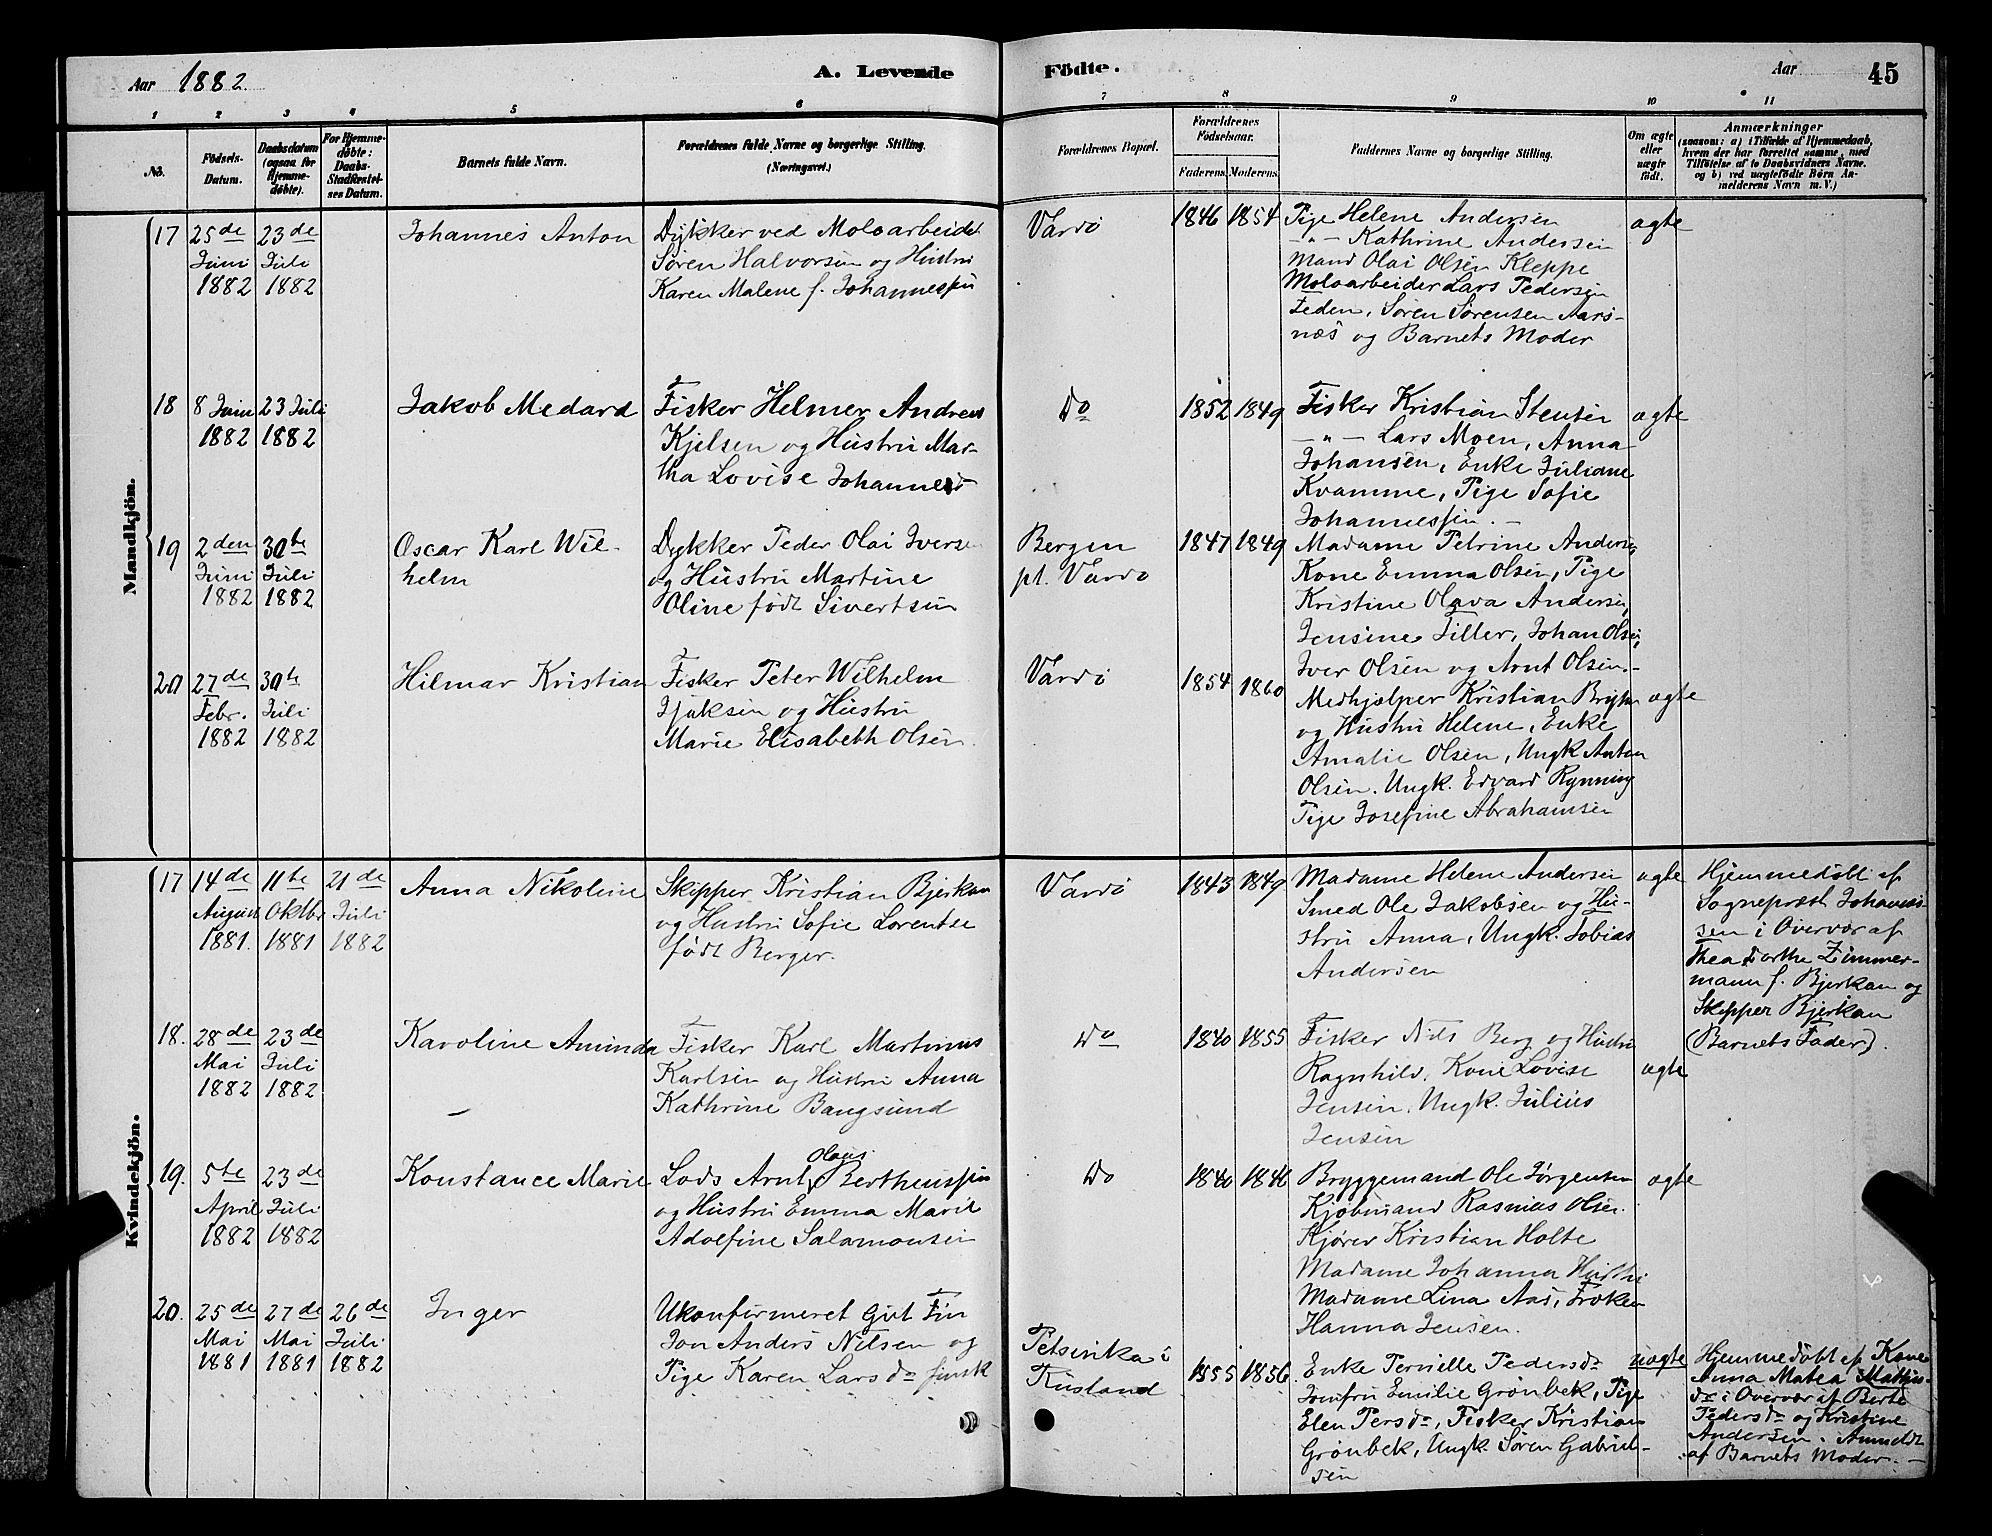 Aar 1882.
A. Levende Födte.
Aar 45
1 2 3 4 5 6 7 8 9 10 11
No.
Födsels-Datum.
Daabsdatum (ogsaa for Hjemme-døbte).
For Hjemme-døbte: Daabs-Stadfæstel-ses Datum.
Barnets fulde Navn.
Forældrenes fulde Navne og borgerlige Stilling. (Næringsvei.)
Forældrenes Bopæl.
Forældrenes Födselsaar.
Faderens. Moderens.
Faddernes Navne og borgerlige Stilling.
Om ægte eller uægte født.
Anmærkninger
(saasom: a) i Tilfælde af Hjemmedaab,
hvem der har forrettet samme, med
Tilföielse af to Daabsvidners Navne,
og b) ved uægtefödte Börn An-
melderens Navn m. V.)
Mandkjön.
17 25de Juni 1882 23de Juli 1882
Johannes Anton
Dykker ved Moloarbeidet
Søren Halvorsen og Hustru
Karen Malene f. Johannessen
Vardö
1846 1854
Pige Helene Andersen
—"— Kathrine Andersen
Mand Olai Olsen Kleppe
Moloarbeider Lars Pedersen
Feden, Søren Sørensen Aars-
næs og Barnets Moder
ægte
18 8 Juni 1882 23 Juli 1882
Jakob Medard
Fisker Helmer Andreas
Kjelsen og Hustru Mar-
tha Lovise Johannesd
Do
1852 1849
Fisker Kristian Stensen
—"— Lars Moen, Anna
Johansen, Enke Juliane
Kvamme, Pige Sofie
Johannessen.—
ægte
19 2den Juni 1882 30te Juli 1882
Oscar Karl Wil-
helm
Dykker Peder Olai Iversen
og Hustru Martine
Oline født Sivertsen
Bergen
pt. Vardö
1847 1849
Madame Petrine Andersen
Kone Emma Olsen, Pige
Kristine Olava Andersen,
Jensine Tiller, Johan Olsen,
Iver Olsen og Arnt Olsen.-
20 27de Febr. 1882 30te Juli 1882
Hilmar Kristian
Fisker Peter Wilhelm
Isaksen og Hustru
Marie Elisabeth Olsen.
Vardö
1854 1860
Medhjælper Kristian
og Hustru Helene, Enke
Amalie Olsen, Ungk Anton
Olsen. Ungk. Edvard Rynning
Pige Josefine Abrahamsen
ægte
Kvindekjön.
17 14de August 1881. 11te Oktbr 1881 21de Juli 1882
Anna Nikoline
Skipper Kristian Bjerkan
og Hustru Sofie Lorentse
født Berger.
Vardö
1843 1849
Madame Helene Andersen
Smed Ole Jakobsen og Hu-
stru Anna, Ungk. Tobias
Andersen
ægte
Hjemmedöbt af
Sognepræst Johannes-
sen i Overvær af
Thea Dorthe Zimmer-
mann f. Bjerkan og
Skipper Bjerkan
(Barnets Fader).
18. 28de Mai 1882 23de Juli 1882
Karoline Aminda
Fisker Karl Martinus
Karlsen og Hustru Anna
Kathrine Bangsund
Do
1840 1855
Fisker Nils Berg og Hustru
Ragnhild, Kone Lovise
Jensen, Ungk. Julius
Jensen
ægte
19. 5te April 1882 23de Juli 1882
Konstance Marie
Lods Arnt Olaus Berthenssen
og Hustru Emma Marie
Adolfine Salamonsen
Do
1840 1846
Bryggemand Ole Jørgensen
Kjöbmand Rasmus Olsen.
Kjører Kristian Holte
Madame Johanna Husthi
Madame Lina Aas, Frøken
Hanna Jensen.
ægte
20. 25de Mai 1881 27de Mai 1881 26de Juli 1882
Inger
Ukonfirmeret Gut Fin
Jon Anders Nilsen og
Pige Karen Larsda finsk
Petsinika i
Rusland
1855 1856
Enke Pernille Pedersda
Jomfru Emilie Grønbek, Pige
Elen Persda, Fisker Kristian
Grønbek, Ungk. Søren Gabriel-
sen
uægte
Hjemmedöbt af Kone
Anna Matea Mathis-
da i Overvær af Berte
Pedersda og Kristine
Andersen. Anmeldt
af Barnets Moder.—